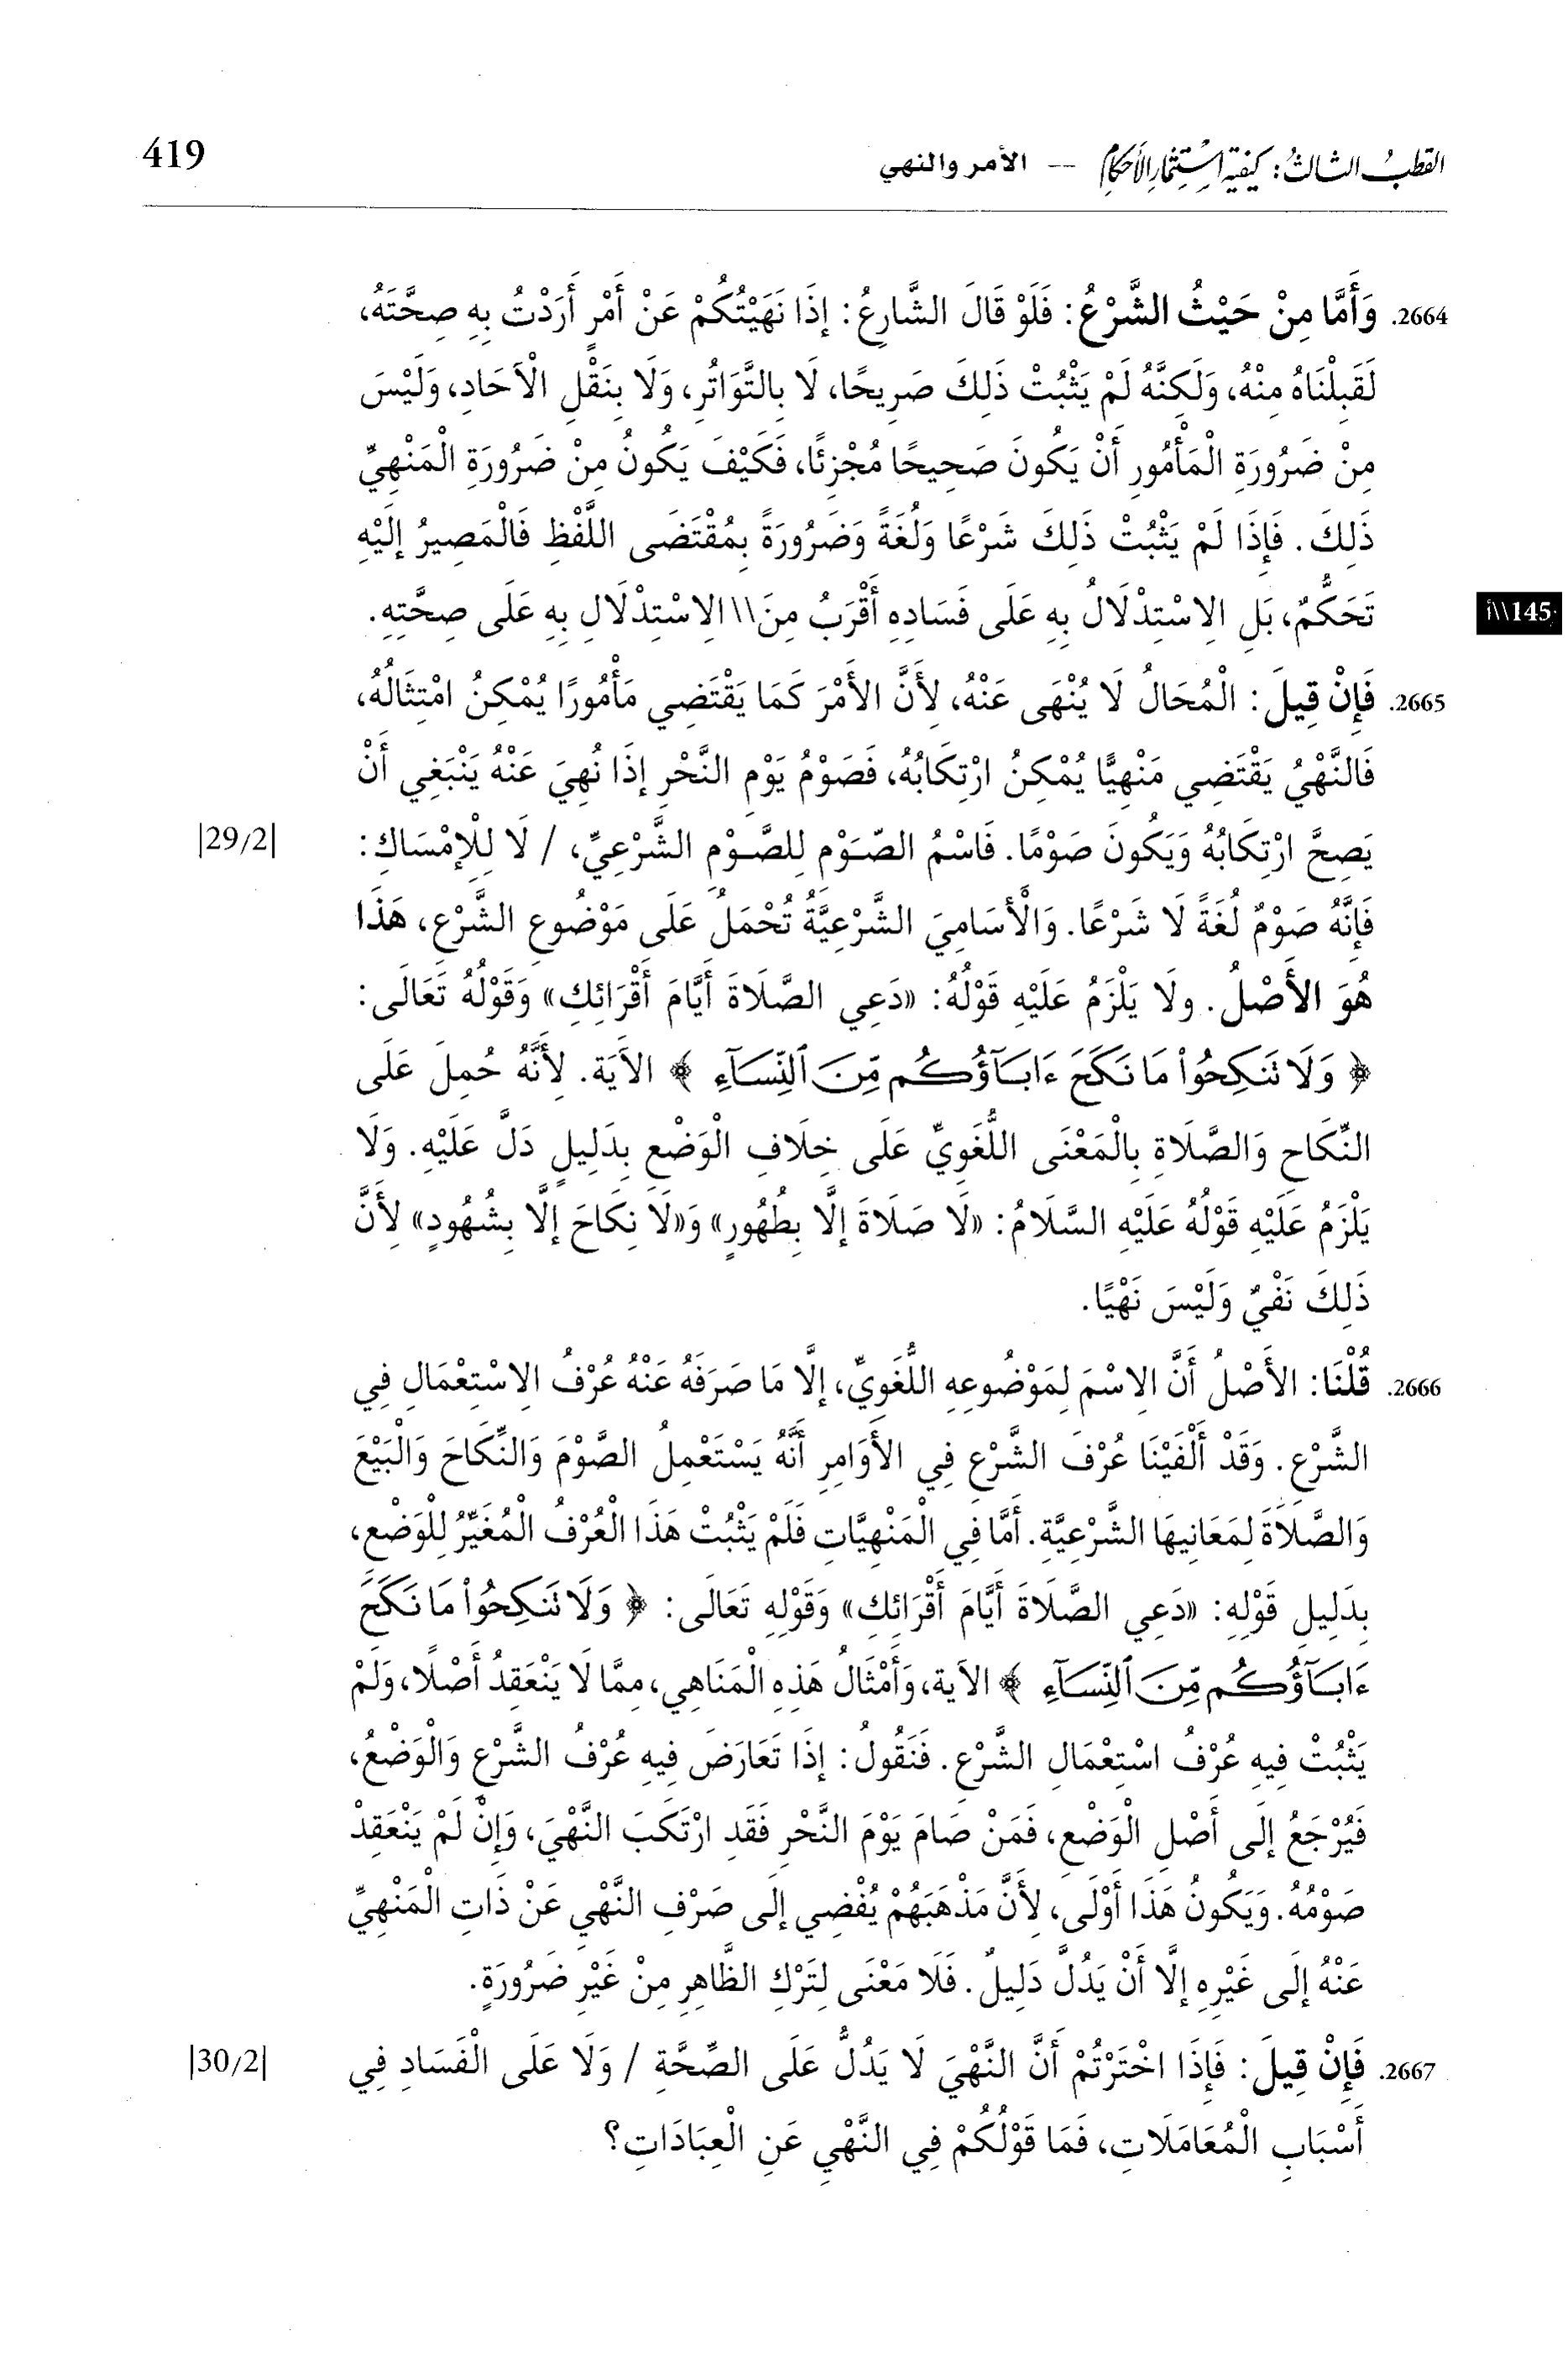 القطب الثالث: كيفية استثمار الأحكام -- الأمر والنهي 419
2664. وَأَمَّا مِنْ حَيْثُ الشَّرْعُ: فَلَوْ قَالَ الشَّارِعُ: إِذَا نَهَيْتُكُمْ عَنْ أَمْرٍ أَرَدْتُ بِهِ صِحَّتَهُ،
لَقَبِلْنَاهُ مِنْهُ، وَلَكِنَّهُ لَمْ يَثْبُتْ ذَلِكَ صَرِيحًا، لَا بِالتَّوَاتُرِ، وَلَا بِنَقْلِ الْآحَادِ، وَلَيْسَ
مِنْ ضَرُورَةِ الْمَأْمُورِ أَنْ يَكُونَ صَحِيحًا مُجْزِئًا، فَكَيْفَ يَكُونُ مِنْ ضَرُورَةِ الْمَنْهِيِّ
ذَلِكَ. فَإِذَا لَمْ يَثْبُتْ ذَلِكَ شَرْعًا وَلُغَةً وَضَرُورَةً بِمُقْتَضَى اللَّفْظِ فَالْمَصِيرُ إِلَيْهِ
تَحَكُّمٌ، بَلِ الِاسْتِدْلَالُ بِهِ عَلَى فَسَادِهِ أَقْرَبُ مِنَ \\ الِاسْتِدْلَالِ بِهِ عَلَى صِحَّتِهِ.
145\\أ
2665. فَإِنْ قِيلَ: الْمُحَالُ لَا يُنْهَى عَنْهُ، لِأَنَّ الأَمْرَ كَمَا يَقْتَضِي مَأْمُورًا يُمْكِنُ امْتِثَالُهُ،
فَالنَّهْيُ يَقْتَضِي مَنْهِيًّا يُمْكِنُ ارْتِكَابُهُ، فَصَوْمُ يَوْمِ النَّحْرِ إِذَا نُهِيَ عَنْهُ يَنْبَغِي أَنْ
يَصِحَّ ارْتِكَابُهُ وَيَكُونَ صَوْمًا. فَاسْمُ الصَّوْمِ لِلصَّوْمِ الشَّرْعِيِّ، / لَا لِلْإِمْسَاكِ:
|29/2|
فَإِنَّهُ صَوْمٌ لُغَةً لَا شَرْعًا. وَالْأَسَامِيَ الشَّرْعِيَّةُ تُحْمَلُ عَلَى مَوْضُوعِ الشَّرْعِ، هَذَا
هُوَ الأَصْلُ. ولَا يَلْزَمُ عَلَيْهِ قَوْلُهُ: «دَعِي الصَّلَاةَ أَيَّامَ أَقْرَائِكِ» وَقَوْلُهُ تَعَالَى:
﴿ وَلَا تَنكِحُوا۟ مَا نَكَحَ ءَابَآؤُكُم مِّنَ ٱلنِّسَآءِ ﴾ الآيَة. لِأَنَّهُ حُمِلَ عَلَى
النِّكَاحِ وَالصَّلَاةِ بِالْمَعْنَى اللُّغَوِيِّ عَلَى خِلَافِ الْوَضْعِ بِدَلِيلٍ دَلَّ عَلَيْهِ. وَلَا
يَلْزَمُ عَلَيْهِ قَوْلُهُ عَلَيْهِ السَّلَامُ: «لَا صَلَاةَ إِلَّا بِطُهُورٍ» وَ«لَا نِكَاحَ إِلَّا بِشُهُودٍ» لِأَنَّ
ذَلِكَ نَفْيٌ وَلَيْسَ نَهْيًا.
2666. قُلْنَا: الأَصْلُ أَنَّ الِاسْمَ لِمَوْضُوعِهِ اللُّغَوِيِّ، إِلَّا مَا صَرَفَهُ عَنْهُ عُرْفُ الِاسْتِعْمَالِ فِي
الشَّرْعِ. وَقَدْ أَلْفَيْنَا عُرْفَ الشَّرْعِ فِي الأَوَامِرِ أَنَّهُ يَسْتَعْمِلُ الصَّوْمَ وَالنِّكَاحَ وَالْبَيْعَ
وَالصَّلَاةَ لِمَعَانِيهَا الشَّرْعِيَّةِ. أَمَّا فِي الْمَنْهِيَّاتِ فَلَمْ يَثْبُتْ هَذَا الْعُرْفُ الْمُغَيِّرُ لِلْوَضْعِ،
بِدَلِيلِ قَوْلِهِ: «دَعِي الصَّلَاةَ أَيَّامَ أَقْرَائِكِ» وَقَوْلِهِ تَعَالَى: ﴿ وَلَا تَنكِحُوا۟ مَا نَكَحَ
ءَابَآؤُكُم مِّنَ ٱلنِّسَآءِ ﴾ الآية، وَأَمْثَالُ هَذِهِ الْمَنَاهِي، مِمَّا لَا يَنْعَقِدُ أَصْلًا، وَلَمْ
يَثْبُتْ فِيهِ عُرْفُ اسْتِعْمَالِ الشَّرْعِ. فَنَقُولُ: إِذَا تَعَارَضَ فِيهِ عُرْفُ الشَّرْعِ وَالْوَضْعُ،
فَيُرْجَعُ إِلَى أَصْلِ الْوَضْعِ، فَمَنْ صَامَ يَوْمَ النَّحْرِ فَقَدِ ارْتَكَبَ النَّهْيَ، وَإِنْ لَمْ يَنْعَقِدْ
صَوْمُهُ. وَيَكُونُ هَذَا أَوْلَى، لِأَنَّ مَذْهَبَهُمْ يُفْضِي إِلَى صَرْفِ النَّهْيِ عَنْ ذَاتِ الْمَنْهِيِّ
عَنْهُ إِلَى غَيْرِهِ إِلَّا أَنْ يَدُلَّ دَلِيلٌ. فَلَا مَعْنَى لِتَرْكِ الظَّاهِرِ مِنْ غَيْرِ ضَرُورَةٍ.
2667. فَإِنْ قِيلَ: فَإِذَا اخْتَرْتُمْ أَنَّ النَّهْيَ لَا يَدُلُّ عَلَى الصِّحَّةِ / وَلَا عَلَى الْفَسَادِ فِي
|30/2|
أَسْبَابِ الْمُعَامَلَاتِ، فَمَا قَوْلُكُمْ فِي النَّهْيِ عَنِ الْعِبَادَاتِ؟